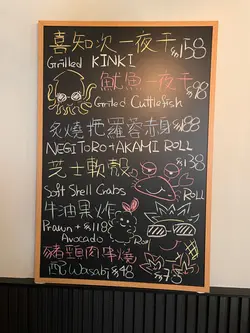 喜知次一夜干 $158
Grilled KINKI
魷魚一夜干
Grilled Cuttlefish $98
炙燒拖羅蓉赤身 $188
NEGITORO+AKAMI ROLL
芝士軟殼 $138
Soft Shell Crabs ROLL
牛油果炸
Prawn + $118
Avocado Roll
豬頸肉串燒
配Wasabi $48
$78